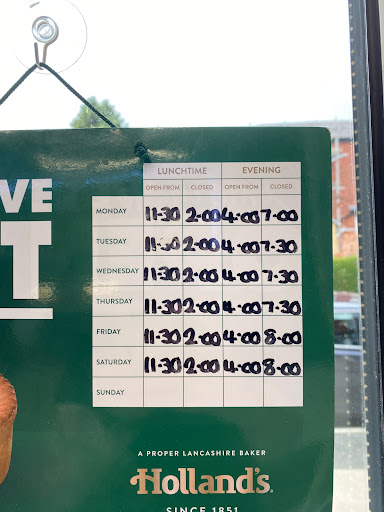 VE
T
LUNCHTIME EVENING
OPEN FROM CLOSED OPEN FROM CLOSED
MONDAY 11-30 2-00 4-00 7-00
TUESDAY 11-30 2-00 4-00 7-30
WEDNESDAY 11-30 2-00 4-00 7-30
THURSDAY 11-30 2-00 4-00 7-30
FRIDAY 11-30 2-00 4-00 8-00
SATURDAY 11-30 2-00 4-00 8-00
SUNDAY
A PROPER LANCASHIRE BAKER
Holland's.
SINCE 1851